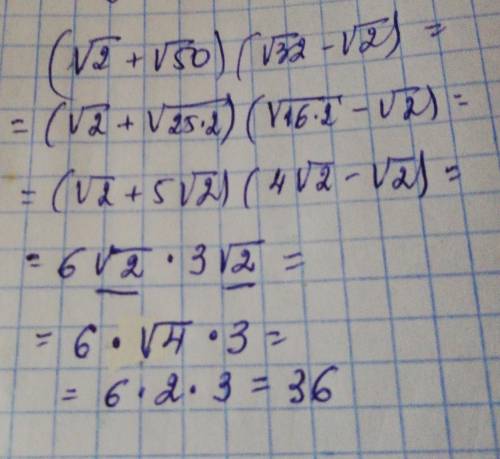 (√2 + √50) (√32 - √2) =
= (√2 + √25·2) (√16·2 - √2) =
= (√2 + 5√2) (4√2 - √2) =
= 6√2 · 3√2 =
= 6 · √4 · 3 =
= 6 · 2 · 3 = 36